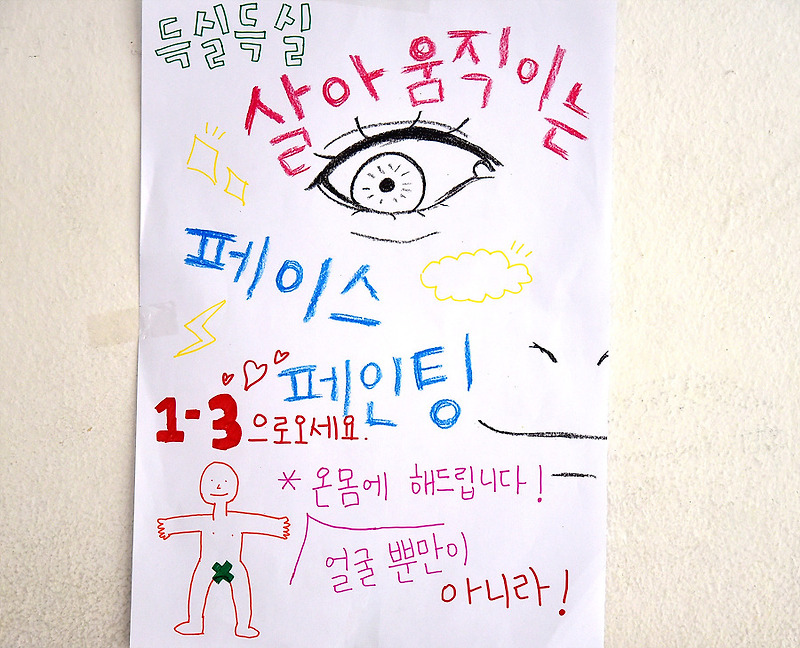 득실득실
살아 움직이는
페이스
페인팅
1-3으로오세요.
* 온몸에 해드립니다!
얼굴 뿐만이
아니라!